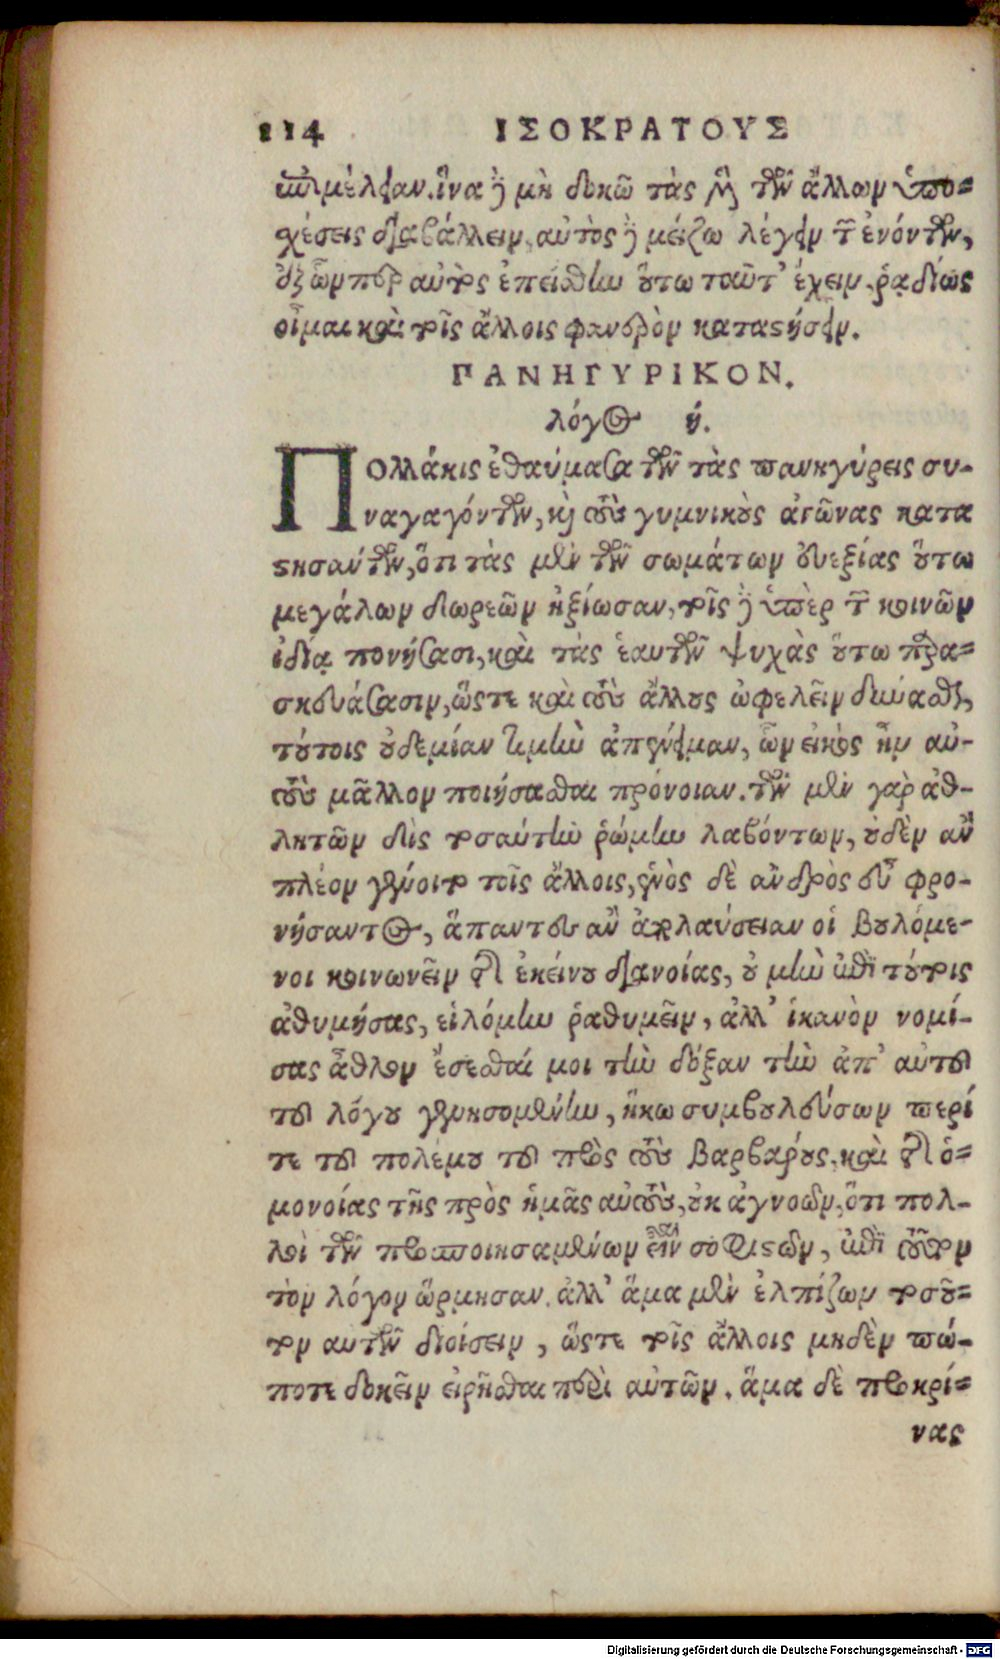 114 ΙΣΟΚΡΑΤΟΥΣ
ἐπιμέλειαν. ἵνα δὲ μὴ δοκῶ τὰς μὲν τῶν ἄλλων ὑπο-
χέσεις διαβάλλειν, αὐτὸς δὲ μείζω λέγειν τῶν ἐνόντων,
ἐξ ὧνπερ αὐτὸς ἐπείσθην οὕτω ταῦτ' ἔχειν, ῥᾳδίως
οἶμαι καὶ τοῖς ἄλλοις φανερὸν καταστήσειν.
ΠΑΝΗΓΥΡΙΚΟΝ.
λόγος ή.
Πολλάκις ἐθαύμασα τῶν τὰς πανηγύρεις συ-
ναγαγόντων, καὶ τοὺς γυμνικοὺς ἀγῶνας κατα
στησάντων, ὅτι τὰς μὲν τῶν σωμάτων εὐεξίας οὕτω
μεγάλων δωρεῶν ἠξίωσαν, τοῖς δὲ ὑπὲρ τῶν κοινῶν
ἰδίᾳ πονήσασι, καὶ τὰς ἑαυτῶν ψυχὰς οὕτω παρα-
σκευάσασιν, ὥστε καὶ τοὺς ἄλλους ὠφελεῖν δύνασθαι,
τούτοις οὐδεμίαν τιμὴν ἀπένειμαν, ὧν εἰκὸς ἦν αὐ-
τοὺς μᾶλλον ποιήσασθαι πρόνοιαν. τῶν μὲν γὰρ ἀθ-
λητῶν δὶς τοσαύτην ῥώμην λαβόντων, οὐδὲν ἂν
πλέον γένοιτο τοῖς ἄλλοις, ἑνὸς δὲ ἀνδρὸς εὖ φρο-
νήσαντος, ἅπαντες ἂν ἀπολαύσειαν οἱ βουλόμε-
νοι κοινωνεῖν τῆς ἐκείνου διανοίας, οὐ μὴν ἐπὶ τούτοις
ἀθυμήσας, εἱλόμην ῥαθυμεῖν, ἀλλ' ἱκανὸν νομί-
σας ἆθλον ἔσεσθαί μοι τὴν δόξαν τὴν ἀπ' αὐτοῦ
τοῦ λόγου γενησομένην, ἥκω συμβουλεύσων περί
τε τοῦ πολέμου τοῦ πρὸς τοὺς βαρβάρους, καὶ τῆς ὁ-
μονοίας τῆς πρὸς ἡμᾶς αὐτοὺς, οὐκ ἀγνοῶν, ὅτι πολ-
λοὶ τῶν προσποιησαμένων εἶναι σοφιστῶν, ἐπὶ τοῦτον
τὸν λόγον ὥρμησαν. ἀλλ' ἅμα μὲν ἐλπίζων τοσοῦ-
τον αυτῶν διοίσειν, ὥστε τοῖς ἄλλοις μηδὲν πώ-
ποτε δοκεῖν εἰρῆσθαι περὶ αὐτῶν. ἅμα δὲ προκρί-
νας
Digitalisierung gefördert durch die Deutsche Forschungsgemeinschaft - DFG